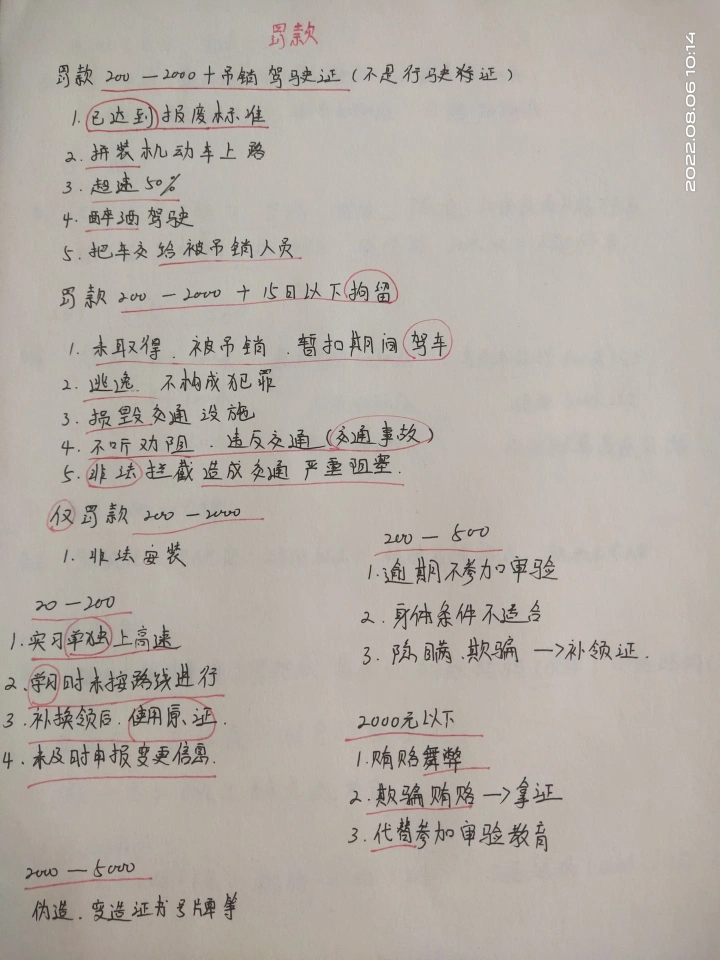 罚款
罚款 200 — 2000 + 吊销驾驶证（不是行驶证）
1. 已达到报废标准
2. 拼装机动车上路
3. 超速50%
4. 醉酒驾驶
5. 把车交给被吊销人员
罚款 200 — 2000 + 15日以下拘留
1. 未取得、被吊销、暂扣期间驾车
2. 逃逸、不构成犯罪
3. 损毁交通设施
4. 不听劝阻、违反交通（交通事故）
5. 非法拦截造成交通严重阻塞.
仅罚款 200 — 2000
1. 非法安装
20 — 200
1. 实习单独上高速
2. 学习时未按路线进行
3. 补换领后、使用原证.
4. 未及时申报变更信息.
2000 — 5000
伪造、变造证书号牌等
200 — 500
1. 逾期不参加审验
2. 身体条件不适合
3. 隐瞒、欺骗 —> 补领证.
2000元以下
1. 贿赂舞弊
2. 欺骗贿赂 —> 拿证
3. 代替参加审验教育
2022.08.06 10:14